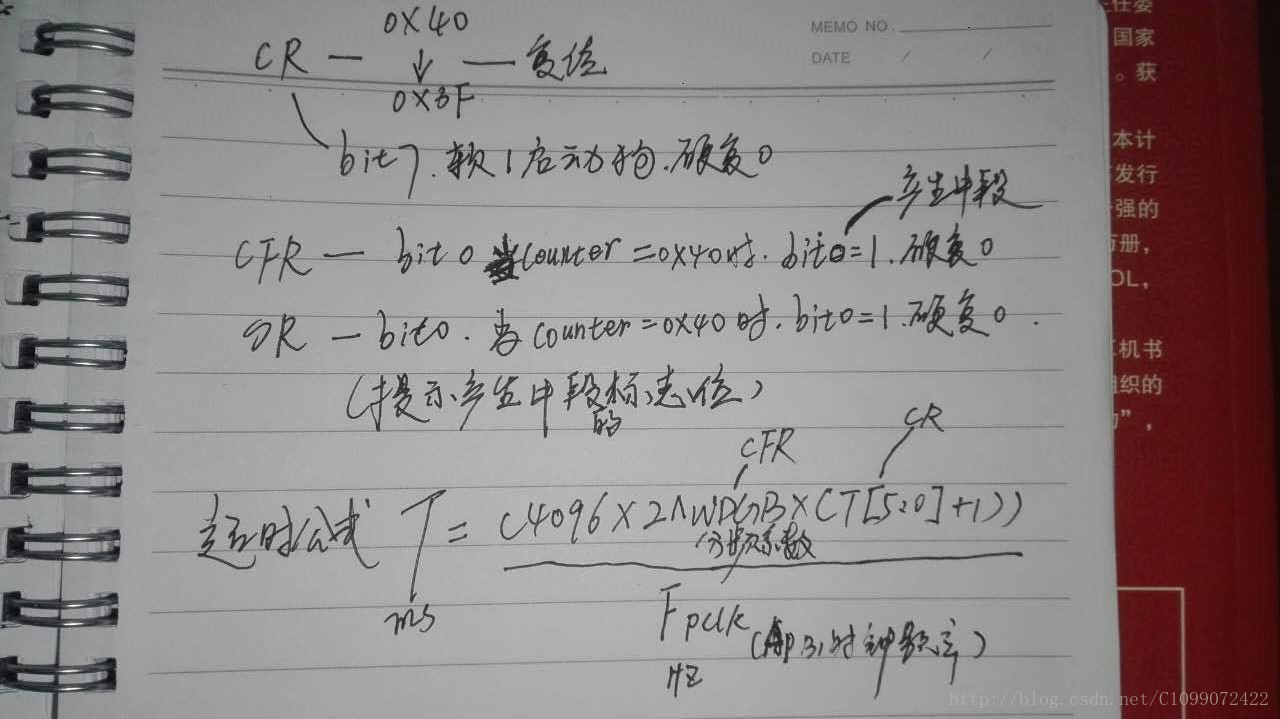 MEMO NO.
DATE / /
0X40
CR — ↓ — 复位
0X3F
bit7.软1启动狗.硬复0
产生中段
CFR — bit0 当counter=0X40时.bit0=1.硬复0
SR — bit0.当counter=0X40时.bit0=1.硬复0.
(提示产生中段的标志位)
CFR
CR
超时公式 T = (4096×2∧WDGB×(T[5:0]+1))
分频系数
ms
Fpclk (APB1时钟频率)
HZ
主任委
国家
。获
本计
发行
强的
册，
OL，
机书
组织的
”，
http://blog.csdn.net/C1099072422